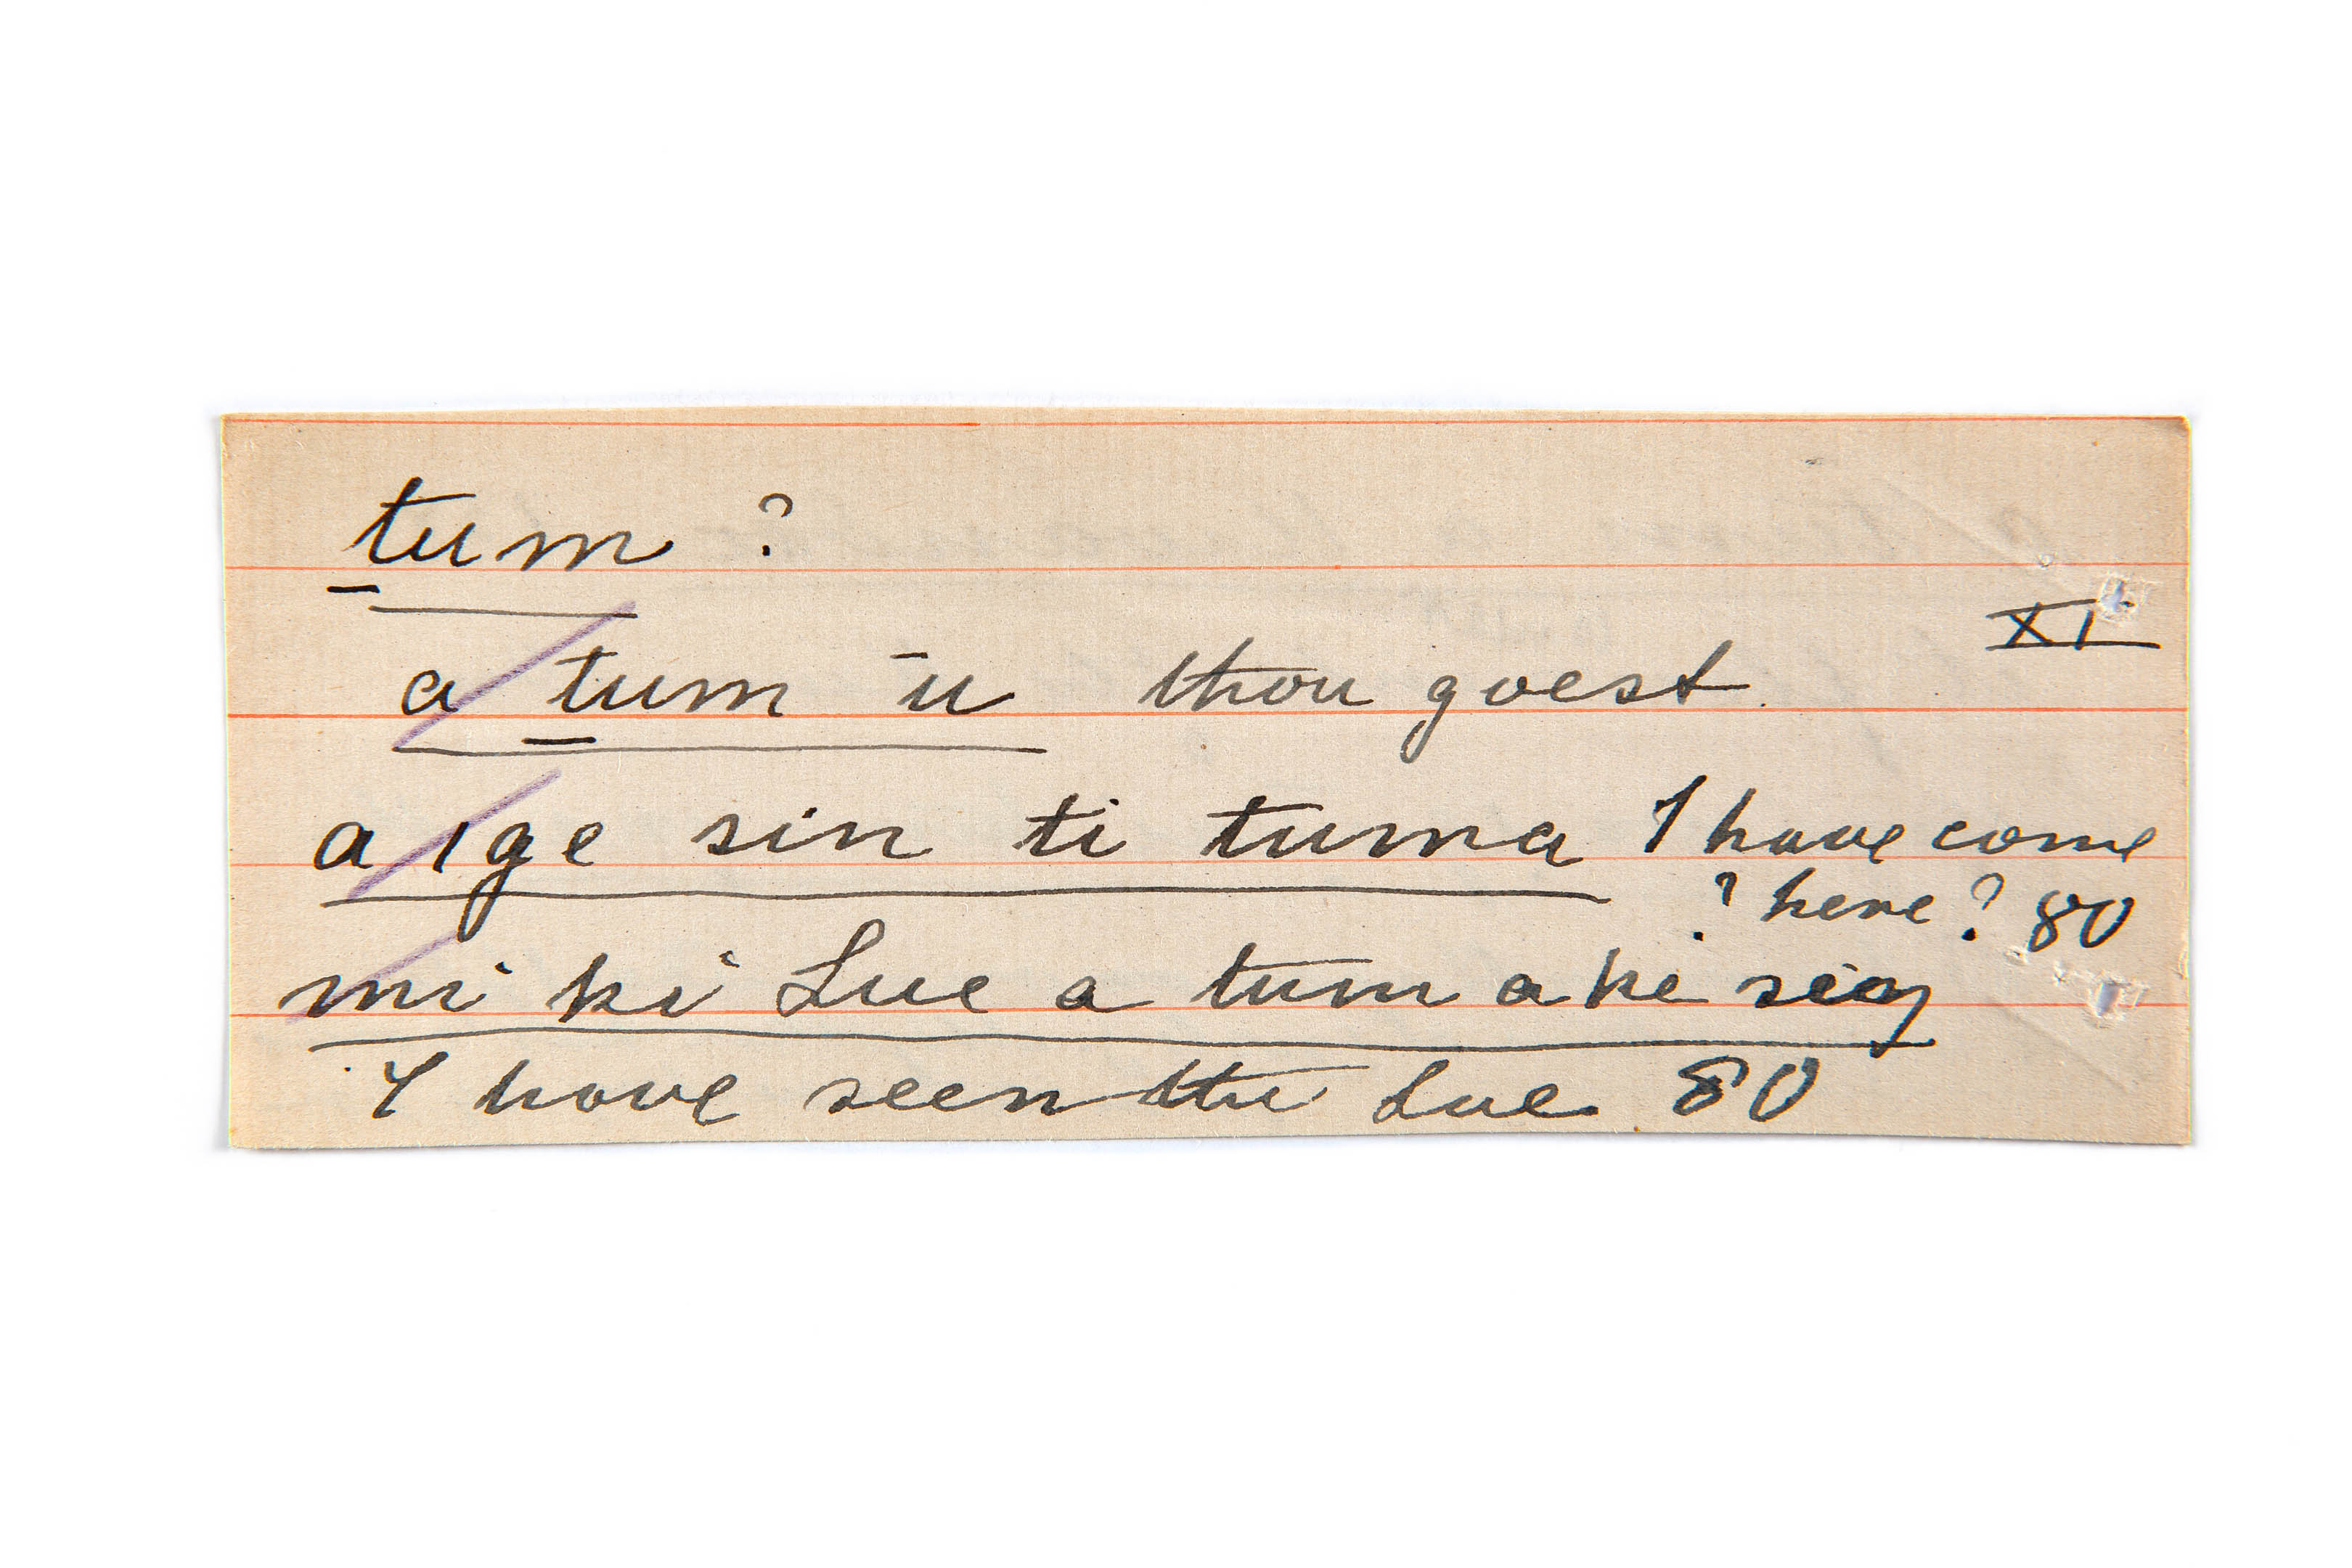 tum ?
XI
a tum ū thou goest.
a ıge sin ti tuma I have come
? here ? 80
mi ki Lue a tum a ke siŋ
I have seen the Lue 80